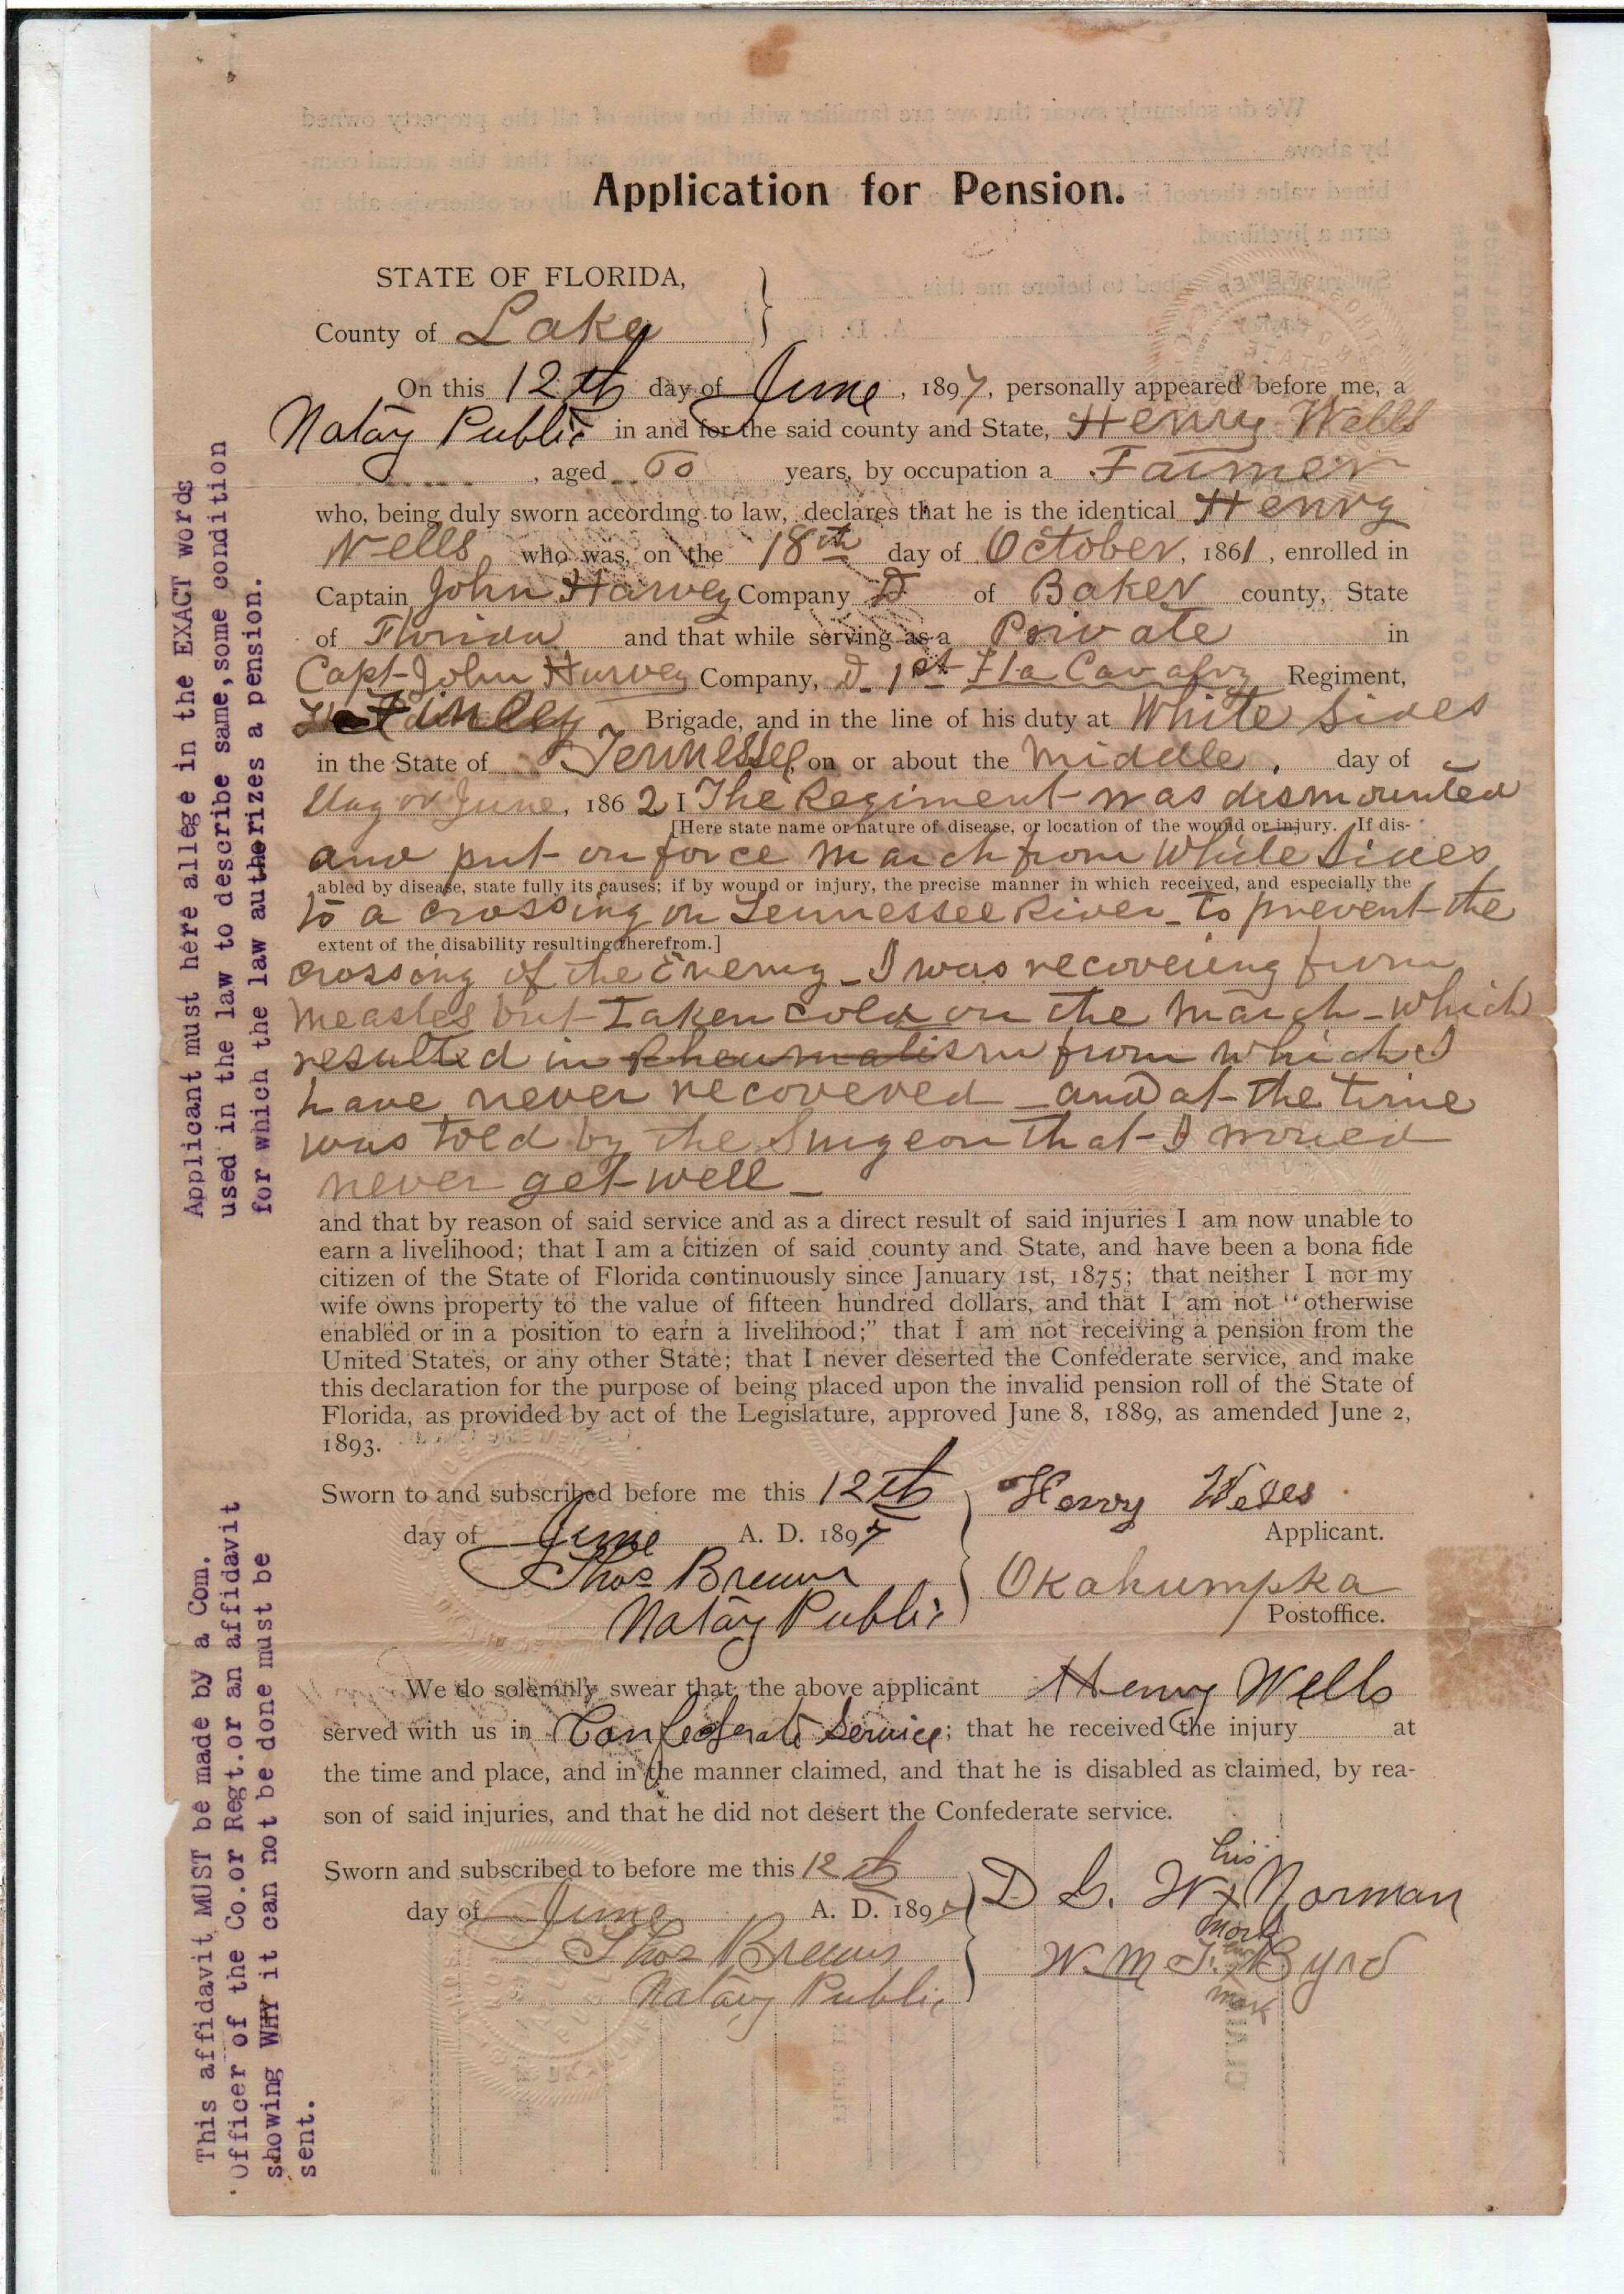 Application for Pension.
STATE OF FLORIDA,
County of Lake
On this 12th day of June, 1897, personally appeared before me, a
Notary Public in and for the said county and State, Henry Wells
, aged 60 years, by occupation a Farmer
who, being duly sworn according to law, declares that he is the identical Henry
Wells who was, on the 18th day of October, 1861, enrolled in
Captain John Harvey Company D of Baker county, State
of Florida and that while serving as a Private in
Capt John Harvey Company, D. 1st Fla Cavalry Regiment,
Finley Brigade, and in the line of his duty at White Sides
in the State of Tennessee, on or about the Middle, day of
May or June, 1862 I The Regiment was dismounted
[Here state name or nature of disease, or location of the wound or injury. If dis-
and put on force march from White Sides
abled by disease, state fully its causes; if by wound or injury, the precise manner in which received, and especially the
to a crossing on Tennessee River to prevent the
extent of the disability resulting therefrom.]
crossing of the Enemy - I was recovering from
measles but Taken cold on the march - which
resulted in Rheumatism from which I
have never recovered - and at the time
was told by the Surgeon that I would
never get well -
and that by reason of said service and as a direct result of said injuries I am now unable to
earn a livelihood; that I am a citizen of said county and State, and have been a bona fide
citizen of the State of Florida continuously since January 1st, 1875; that neither I nor my
wife owns property to the value of fifteen hundred dollars, and that I am not "otherwise
enabled or in a position to earn a livelihood;" that I am not receiving a pension from the
United States, or any other State; that I never deserted the Confederate service, and make
this declaration for the purpose of being placed upon the invalid pension roll of the State of
Florida, as provided by act of the Legislature, approved June 8, 1889, as amended June 2,
1893.
Sworn to and subscribed before me this 12th
day of June A. D. 1897
Thos
Notary Public
Henry Wells
Applicant.
Okahumpka
Postoffice.
We do solemnly swear that the above applicant Henry Wells
served with us in Confederate Service; that he received the injury at
the time and place, and in the manner claimed, and that he is disabled as claimed, by rea-
son of said injuries, and that he did not desert the Confederate service.
Sworn and subscribed to before me this 12th
day of June A. D. 1897
Thos
Notary Public
his
D G. W x Norman
mark
W. M J. x Byrd
mark
Applicant must here allege in the EXACT words
used in the law to describe same, some condition
for which the law authorizes a pension.
This affidavit MUST be made by a Com.
Officer of the Co. or Regt. or an affidavit
showing WHY it can not be done must be
sent.